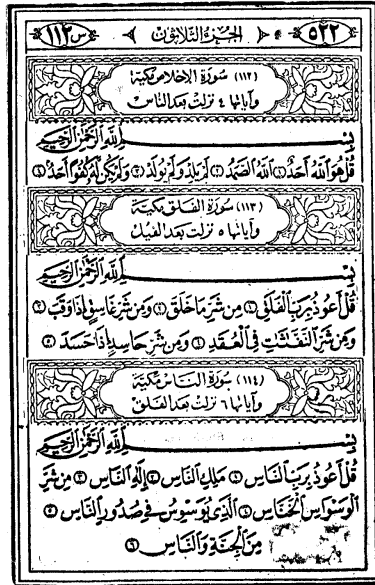 ٥٢٢ الجزء الثلاثون س ١١٢
(١١٢) سورة الإخلاص مكية
وآياتها ٤ نزلت بعد الناس
بِسْمِ ٱللَّهِ ٱلرَّحْمَٰنِ ٱلرَّحِيمِ
قُلْ هُوَ ٱللَّهُ أَحَدٌ ١ ٱللَّهُ ٱلصَّمَدُ ٢ لَمْ يَلِدْ وَلَمْ يُولَدْ ٣ وَلَمْ يَكُن لَّهُ كُفُوًا أَحَدٌ ٤
(١١٣) سورة الفلق مكية
وآياتها ٥ نزلت بعد الفيل
بِسْمِ ٱللَّهِ ٱلرَّحْمَٰنِ ٱلرَّحِيمِ
قُلْ أَعُوذُ بِرَبِّ ٱلْفَلَقِ ١ مِن شَرِّ مَا خَلَقَ ٢ وَمِن شَرِّ غَاسِقٍ إِذَا وَقَبَ ٣
وَمِن شَرِّ ٱلنَّفَّٰثَٰتِ فِي ٱلْعُقَدِ ٤ وَمِن شَرِّ حَاسِدٍ إِذَا حَسَدَ ٥
(١١٤) سورة الناس مكية
وآياتها ٦ نزلت بعد الفلق
بِسْمِ ٱللَّهِ ٱلرَّحْمَٰنِ ٱلرَّحِيمِ
قُلْ أَعُوذُ بِرَبِّ ٱلنَّاسِ ١ مَلِكِ ٱلنَّاسِ ٢ إِلَٰهِ ٱلنَّاسِ ٣ مِن شَرِّ
ٱلْوَسْوَاسِ ٱلْخَنَّاسِ ٤ ٱلَّذِي يُوَسْوِسُ فِي صُدُورِ ٱلنَّاسِ ٥
مِنَ ٱلْجِنَّةِ وَٱلنَّاسِ ٦